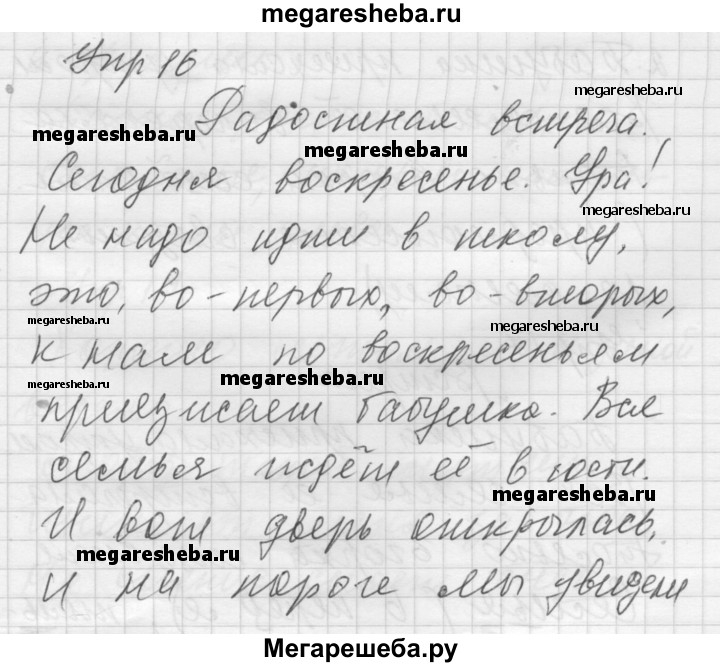 megaresheba.ru
Упр 16
megaresheba.ru
Радостная встреча.
megaresheba.ru
megaresheba.ru
Сегодня воскресенье. Ура!
megaresheba.ru
Не надо идти в школу,
это, во-первых, во-вторых,
megaresheba.ru
megaresheba.ru
к нам по воскресеньям
megaresheba.ru
megaresheba.ru
приезжает бабушка. Вся
семья ждёт её в гости.
megaresheba.ru
И вот дверь открылась,
megaresheba.ru
и на пороге мы увидели
Мегарешеба.ру